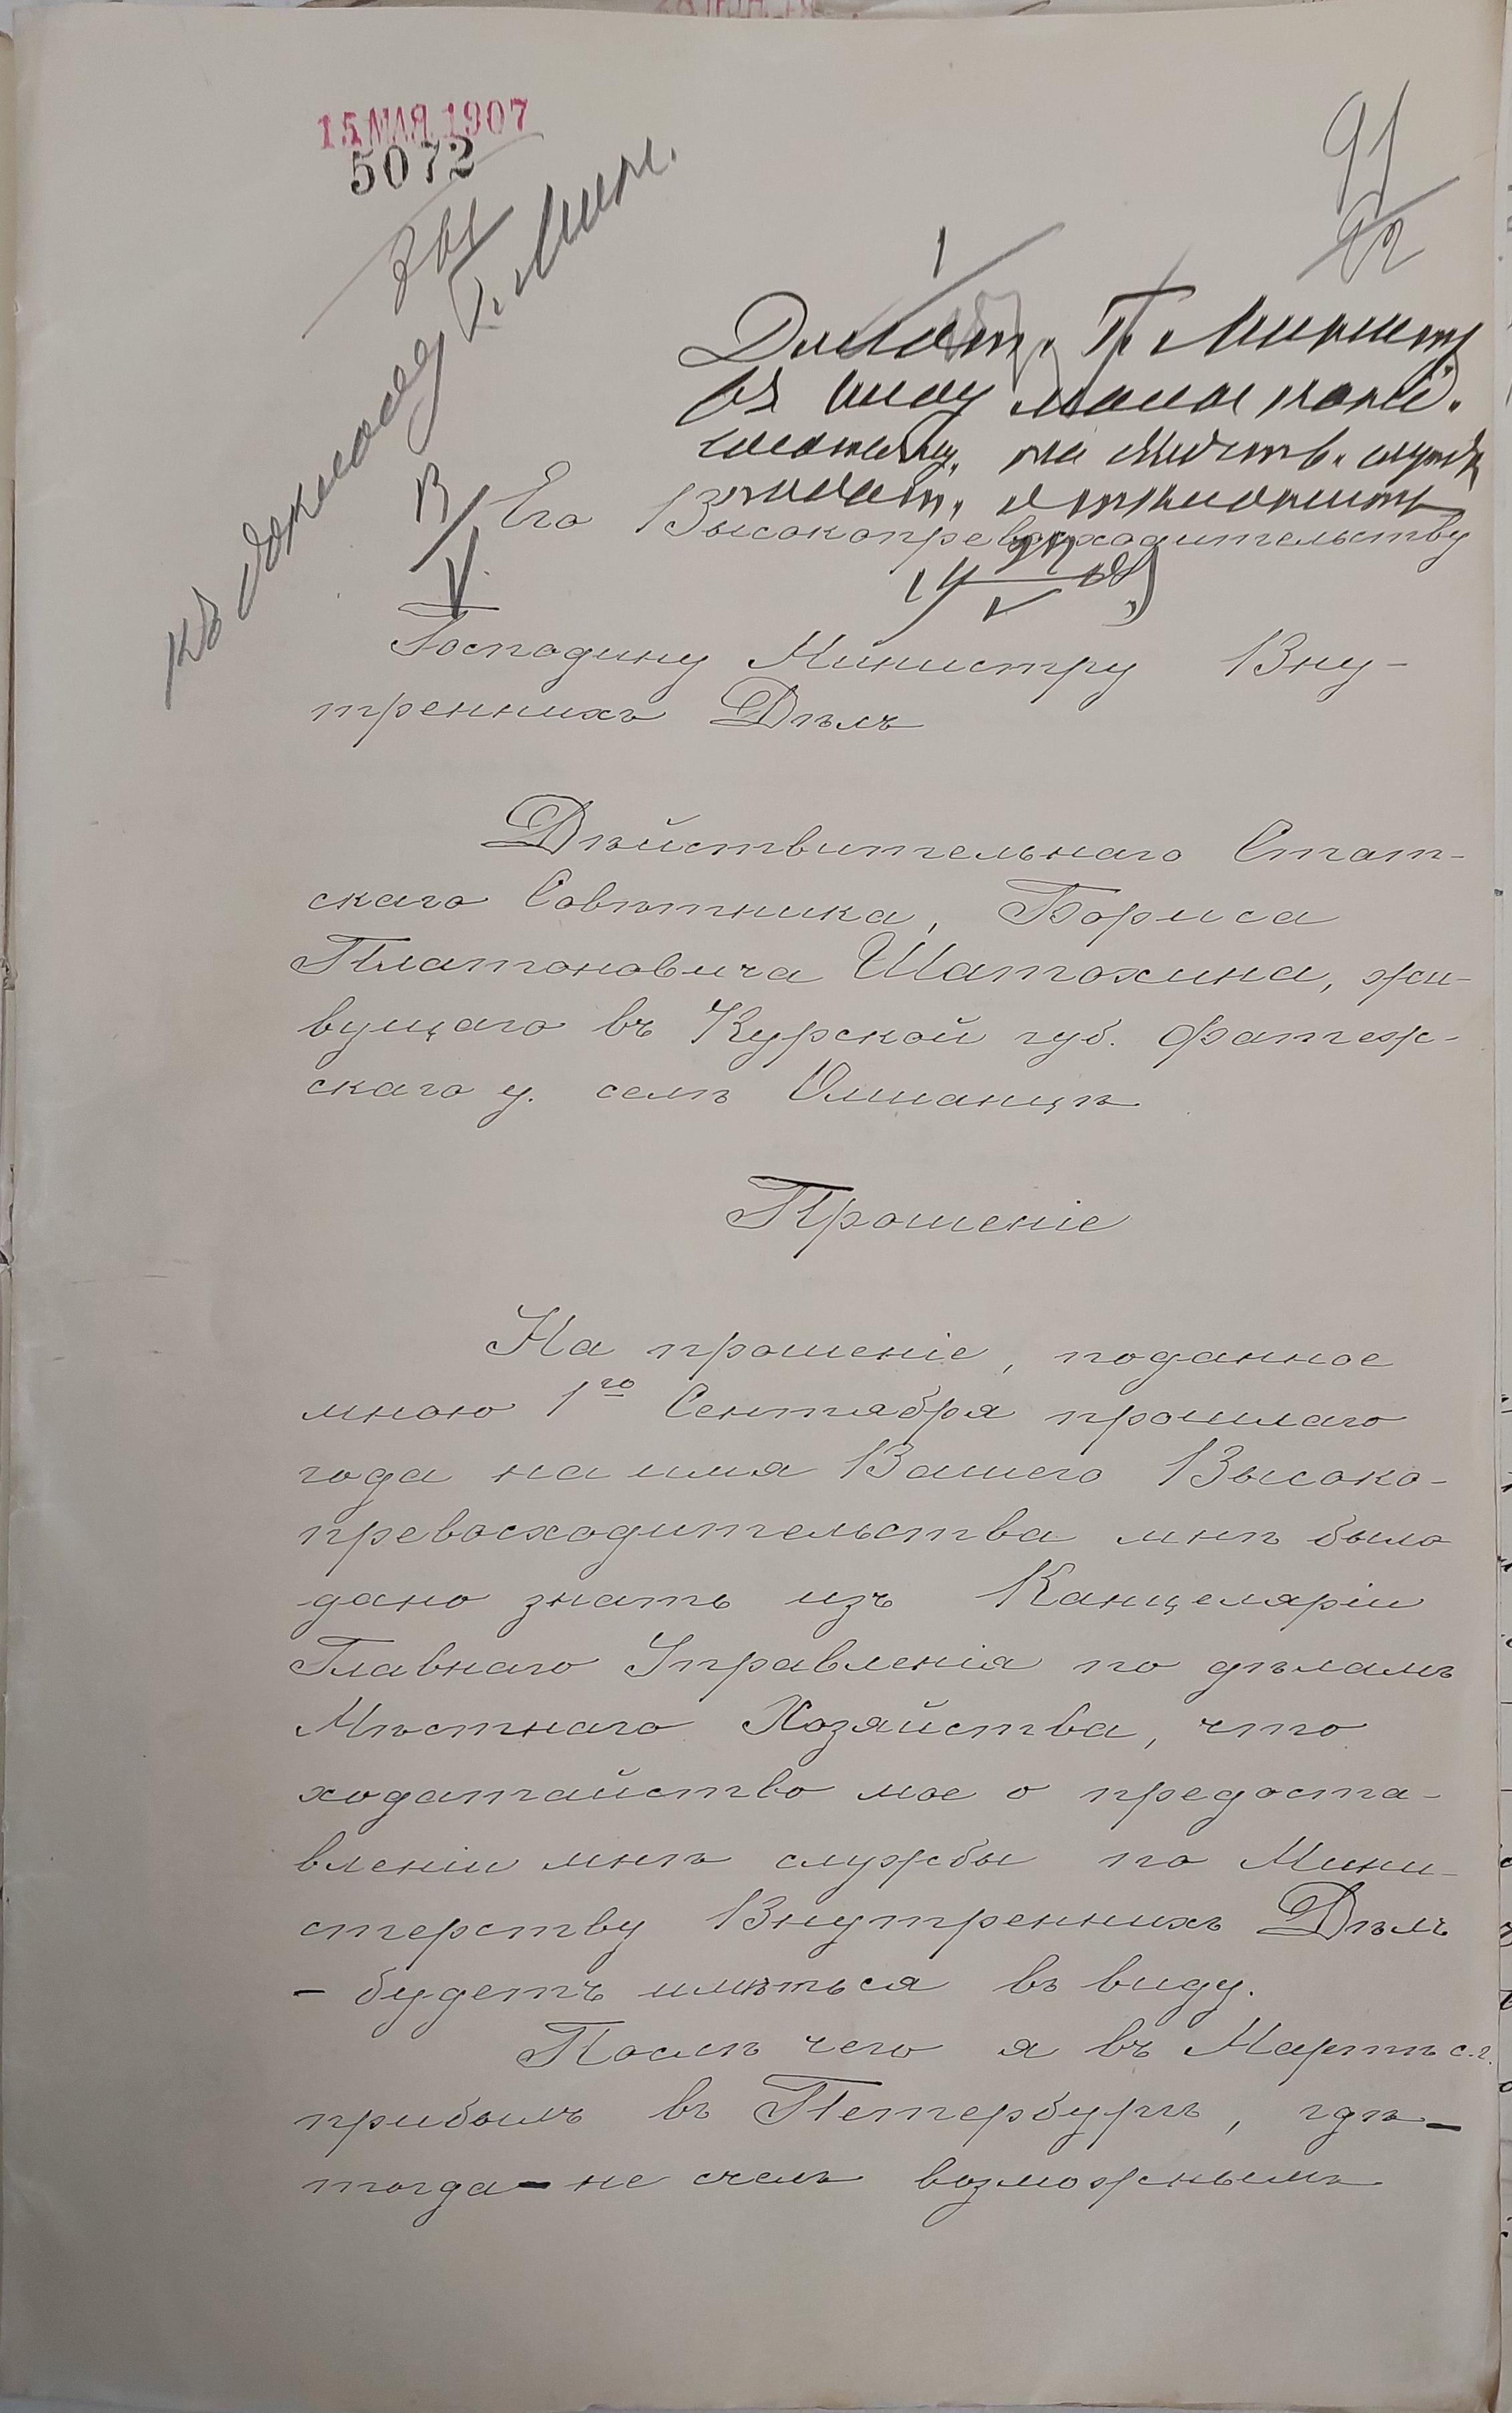 15 МАЯ 1907
5072
91
92
Къ докладу Г. Мин.
13/V
Долож. Г. Министру
14/V 07
Его Высокопревосходительству
Господину Министру Вну-
треннихъ Дѣлъ
Дѣйствительнаго Стат-
скаго Совѣтника, Бориса
Платоновича Шатохина, жи-
вущаго въ Курской губ. Фатеж-
скаго у. селѣ
Прошеніе
На прошеніе, поданное
мною 1го Сентября прошлаго
года на имя Вашего Высоко-
превосходительства мнѣ было
дано знать изъ Канцеляріи
Главнаго Управленія по дѣламъ
Мѣстнаго Хозяйства, что
ходатайство мое о предоста-
вленіи мнѣ службы по Мини-
стерству Внутреннихъ Дѣлъ
- будетъ имѣться въ виду.
Послѣ чего я въ Мартѣ с.г.
прибылъ въ Петербургъ, гдѣ -
тогда - не счелъ возможнымъ